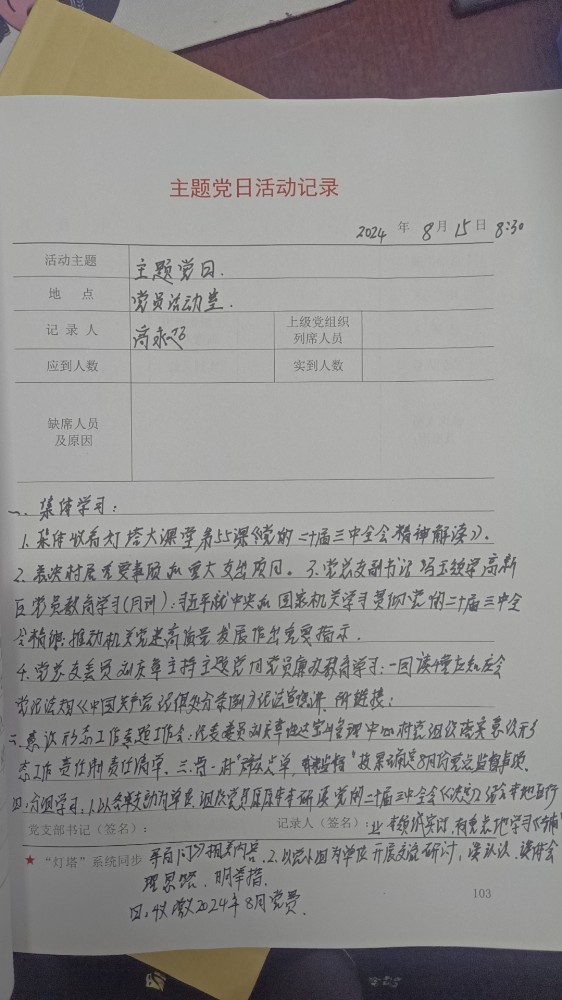 主题党日活动记录
2024 年 8 月 15 日 8:30
活动主题 主题党日.
地 点 党员活动室.
记 录 人 高永 上级党组织列席人员
应到人数 实到人数
缺席人员及原因
一. 集体学习:
1. 集体收看灯塔大课堂第55课《党的二十届三中全会精神解读》.
2. 表决村居重要事项和重大支出项目。3. 党总支副书记冯玉 领学高新
区党员教育学习(月训):习近平就中央和国家机关学习贯彻党的二十届三中全
会精神 推动机关党建高质量发展作出重要指示.
4. 党总支委员刘友章主持主题党日党员廉政教育学习:一图读懂应知应会
党纪法规《中国共产党纪律处分条例》 所链接:
二. 意识形态工作专题工作会:总支委员刘友章 中心村党组织落实意识形
态工作责任制责任清单. 三. 晋一村"群众点单, 监督"投票确定8月份重点监督事项.
四. 分组学习:1. 以各支部为单位, 组织党员原原本本研读党的二十届三中全会《决定》, 结合本地区行
党支部书记(签名): 记录人(签名): 业 实际, 有重点地学习《
★ "灯塔"系统同步 百问》相关内容. 2. 以党小组为单位开展交流研讨, 谈认识. 谈体会
理思路. 明举措.
四: 收缴2024年8月党费.
103